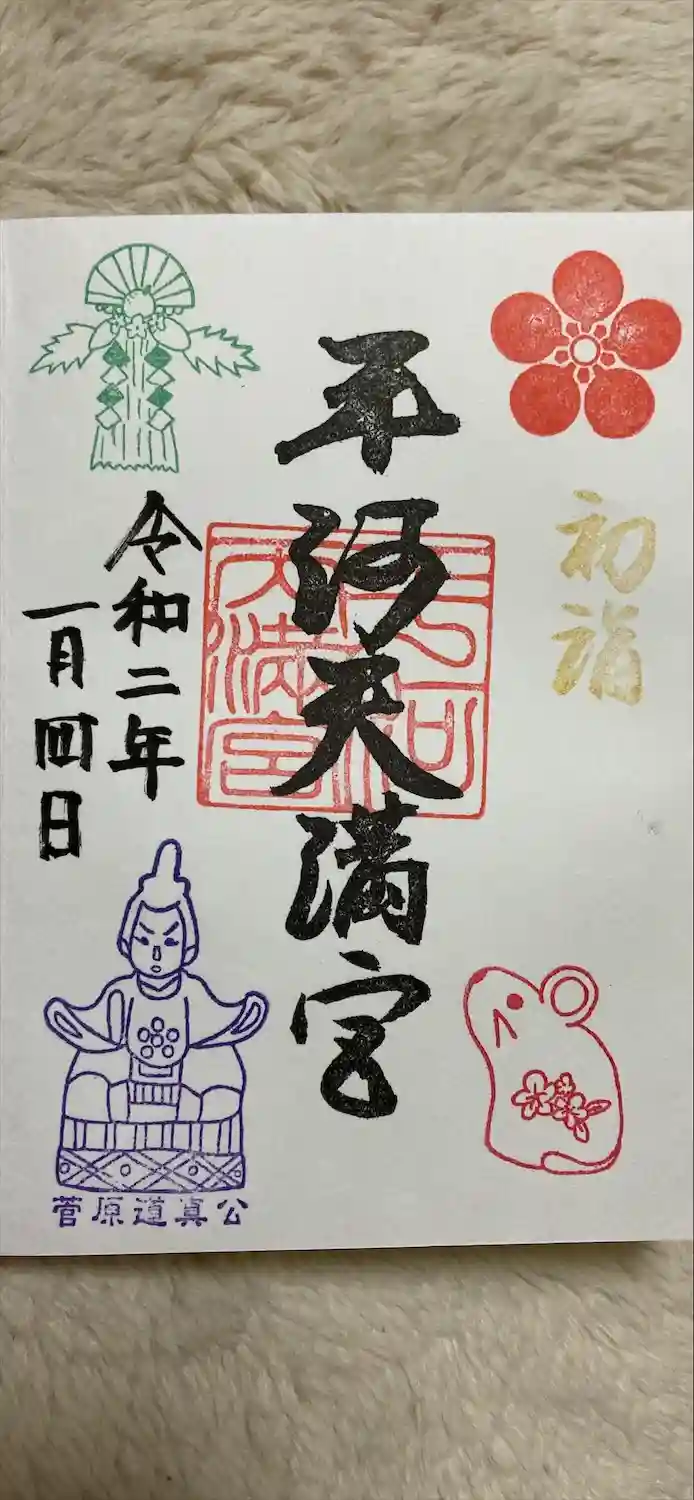 初詣
平河天満宮
平河天満宮
令和二年
一月四日
菅原道真公